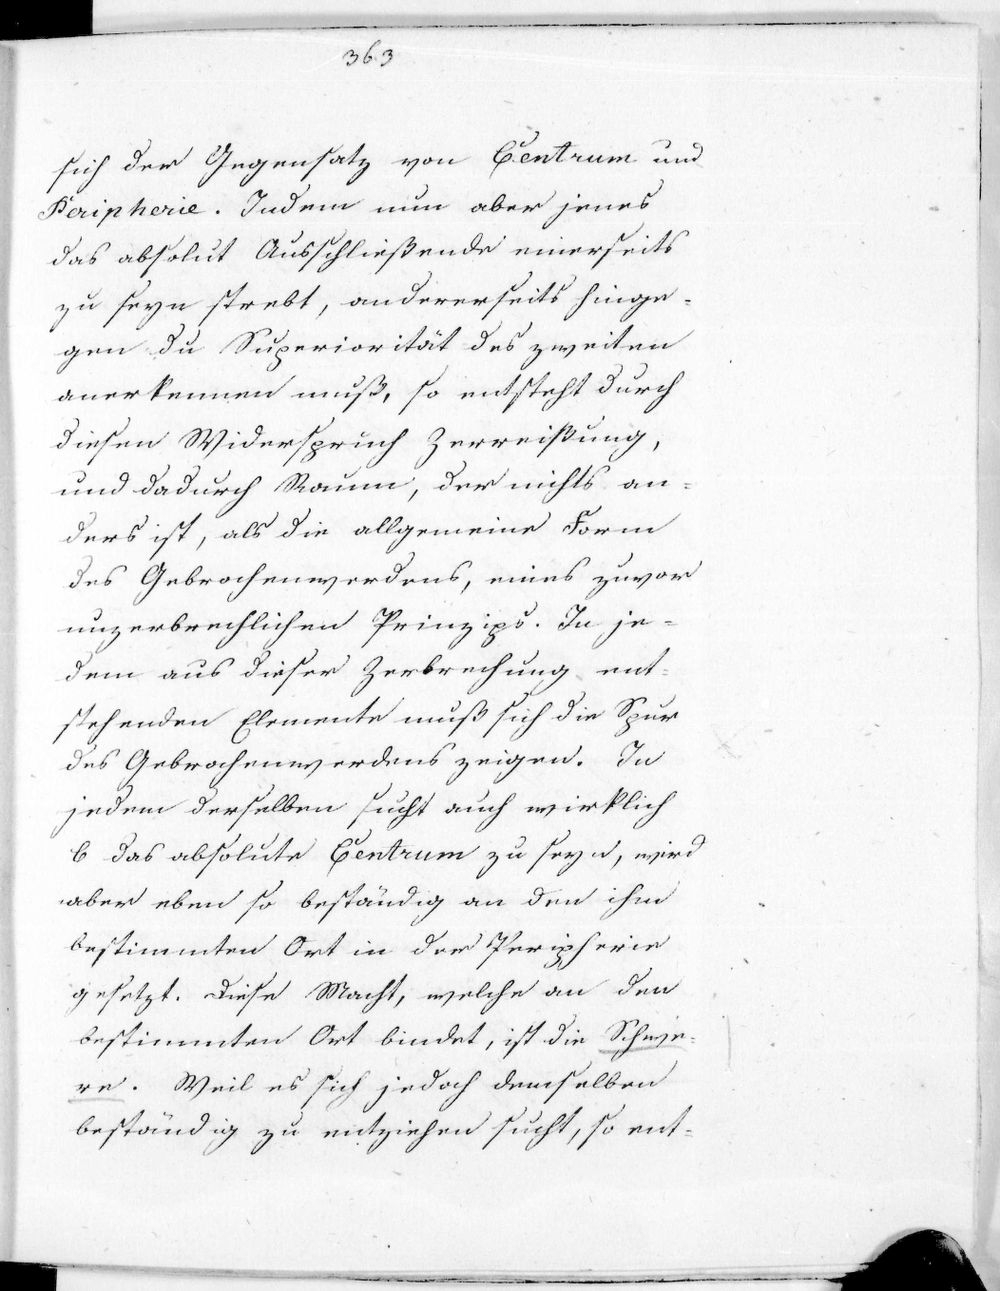 363
sich der Gegensatz von Centrum und
Peripherie. Indem nun aber jenes
das absolut Ausschließende einerseits
zu seyn strebt, andererseits hinge-
gen die Superiorität des zweiten
anerkennen muß, so entsteht durch
diesen Widerspruch Zerreißung,
und dadurch Raum, der nichts an-
ders ist, als die allgemeine Form
des Gebrochenwerdens, eines zuvor
unzerbrechlichen Prinzips. In je-
dem aus dieser Zerbrechung ent-
stehenden Elemente muß sich die Spur
des Gebrochenwerdens zeigen. In
jedem derselben sucht auch wirklich
b das absolute Centrum zu seyn, wird
aber eben so beständig an den ihm
bestimmten Ort in der Peripherie
gesetzt. Diese Macht, welche an den
bestimmten Ort bindet, ist die Schwe-
re. Weil es sich jedoch demselben
beständig zu entziehen sucht, so ent-